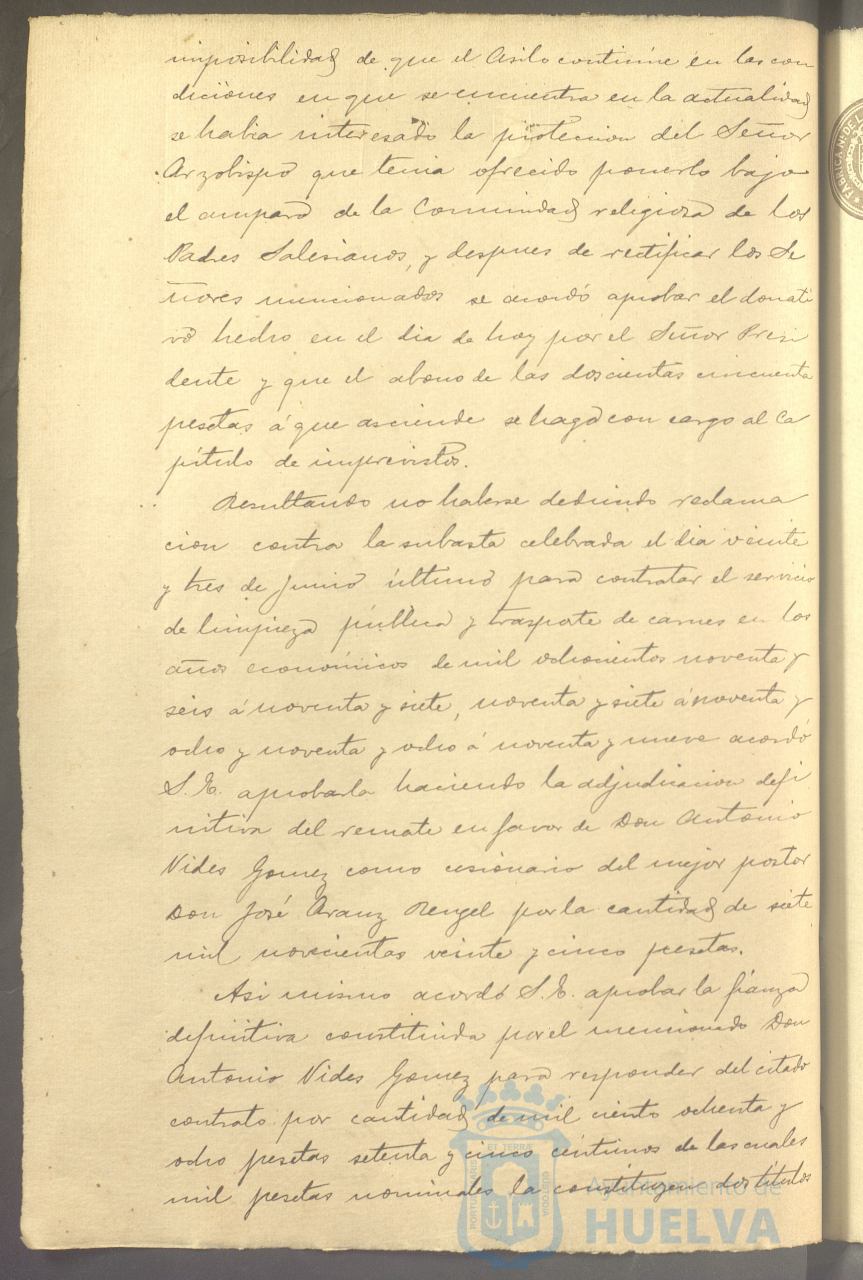 imposibilidad de que el Asilo continúe en las con
diciones en que se encuentra en la actualidad
se habia interesado la proteccion del Señor
Arzobispo que tenia ofrecido ponerlo bajo
el amparo de la Comunidad religiosa de los
Padres Salesianos, y despues de rectificar los Se
ñores mencionados se acordó aprobar el donati
vo hecho en el dia de hoy por el Señor Presi
dente y que el abono de las doscientas cincuenta
pesetas á que asciende se haga con cargo al Ca
pítulo de imprevistos.
Resultando no haberse deducido reclama
cion contra la subasta celebrada el dia veinte
y tres de Junio último para contratar el servicio
de limpieza pública y trasporte de carnes en los
años económicos de mil ochocientos noventa y
seis á noventa y siete, noventa y siete á noventa y
ocho y noventa y ocho á noventa y nueve acordó
S. E. aprobarla haciendo la adjudicacion defi
nitiva del remate en favor de Don Antonio
Vides Gomez como cesionario del mejor postor
Don José Aranz Rengel por la cantidad de siete
mil novecientas veinte y cinco pesetas.
Asi mismo acordó S. E. aprobar la fianza
definitiva constituida por el mencionado Don
Antonio Vides Gomez para responder del citado
contrato por cantidad de mil ciento ochenta y
ocho pesetas setenta y cinco céntimos de las cuales
mil pesetas nominales la constituyen dos títulos
Ayuntamiento de
HUELVA